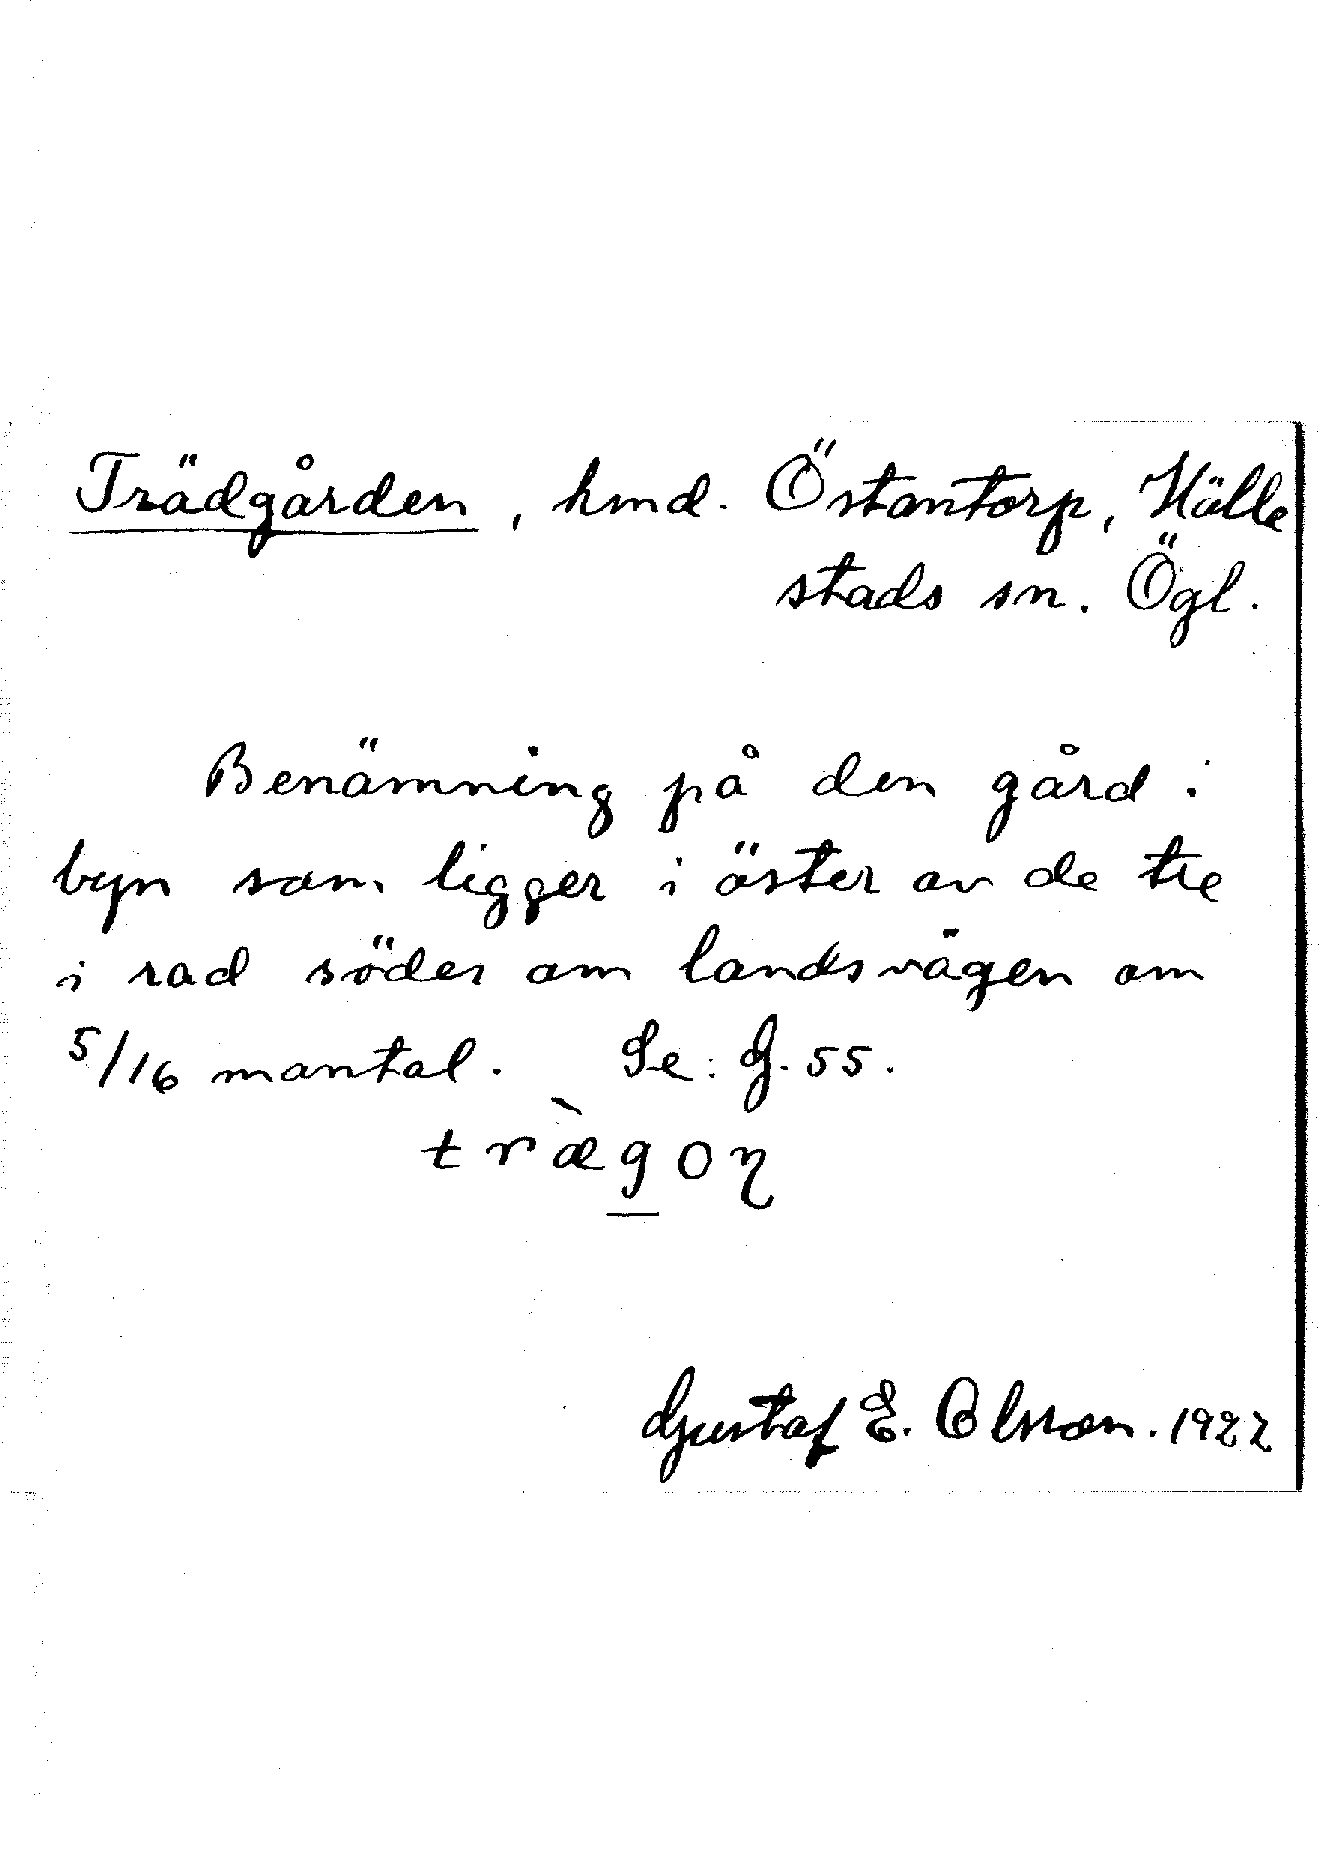 Trädgården, hmd. Östantorp, Hälle
stads sn. Ögl.
Benämning på den gård i
byn som ligger i öster av de tre
i rad söder om landsvägen om
5/16 mantal. Se: G. 55.
træ̀g̲oɳ
Gustaf E. Olsson. 1922